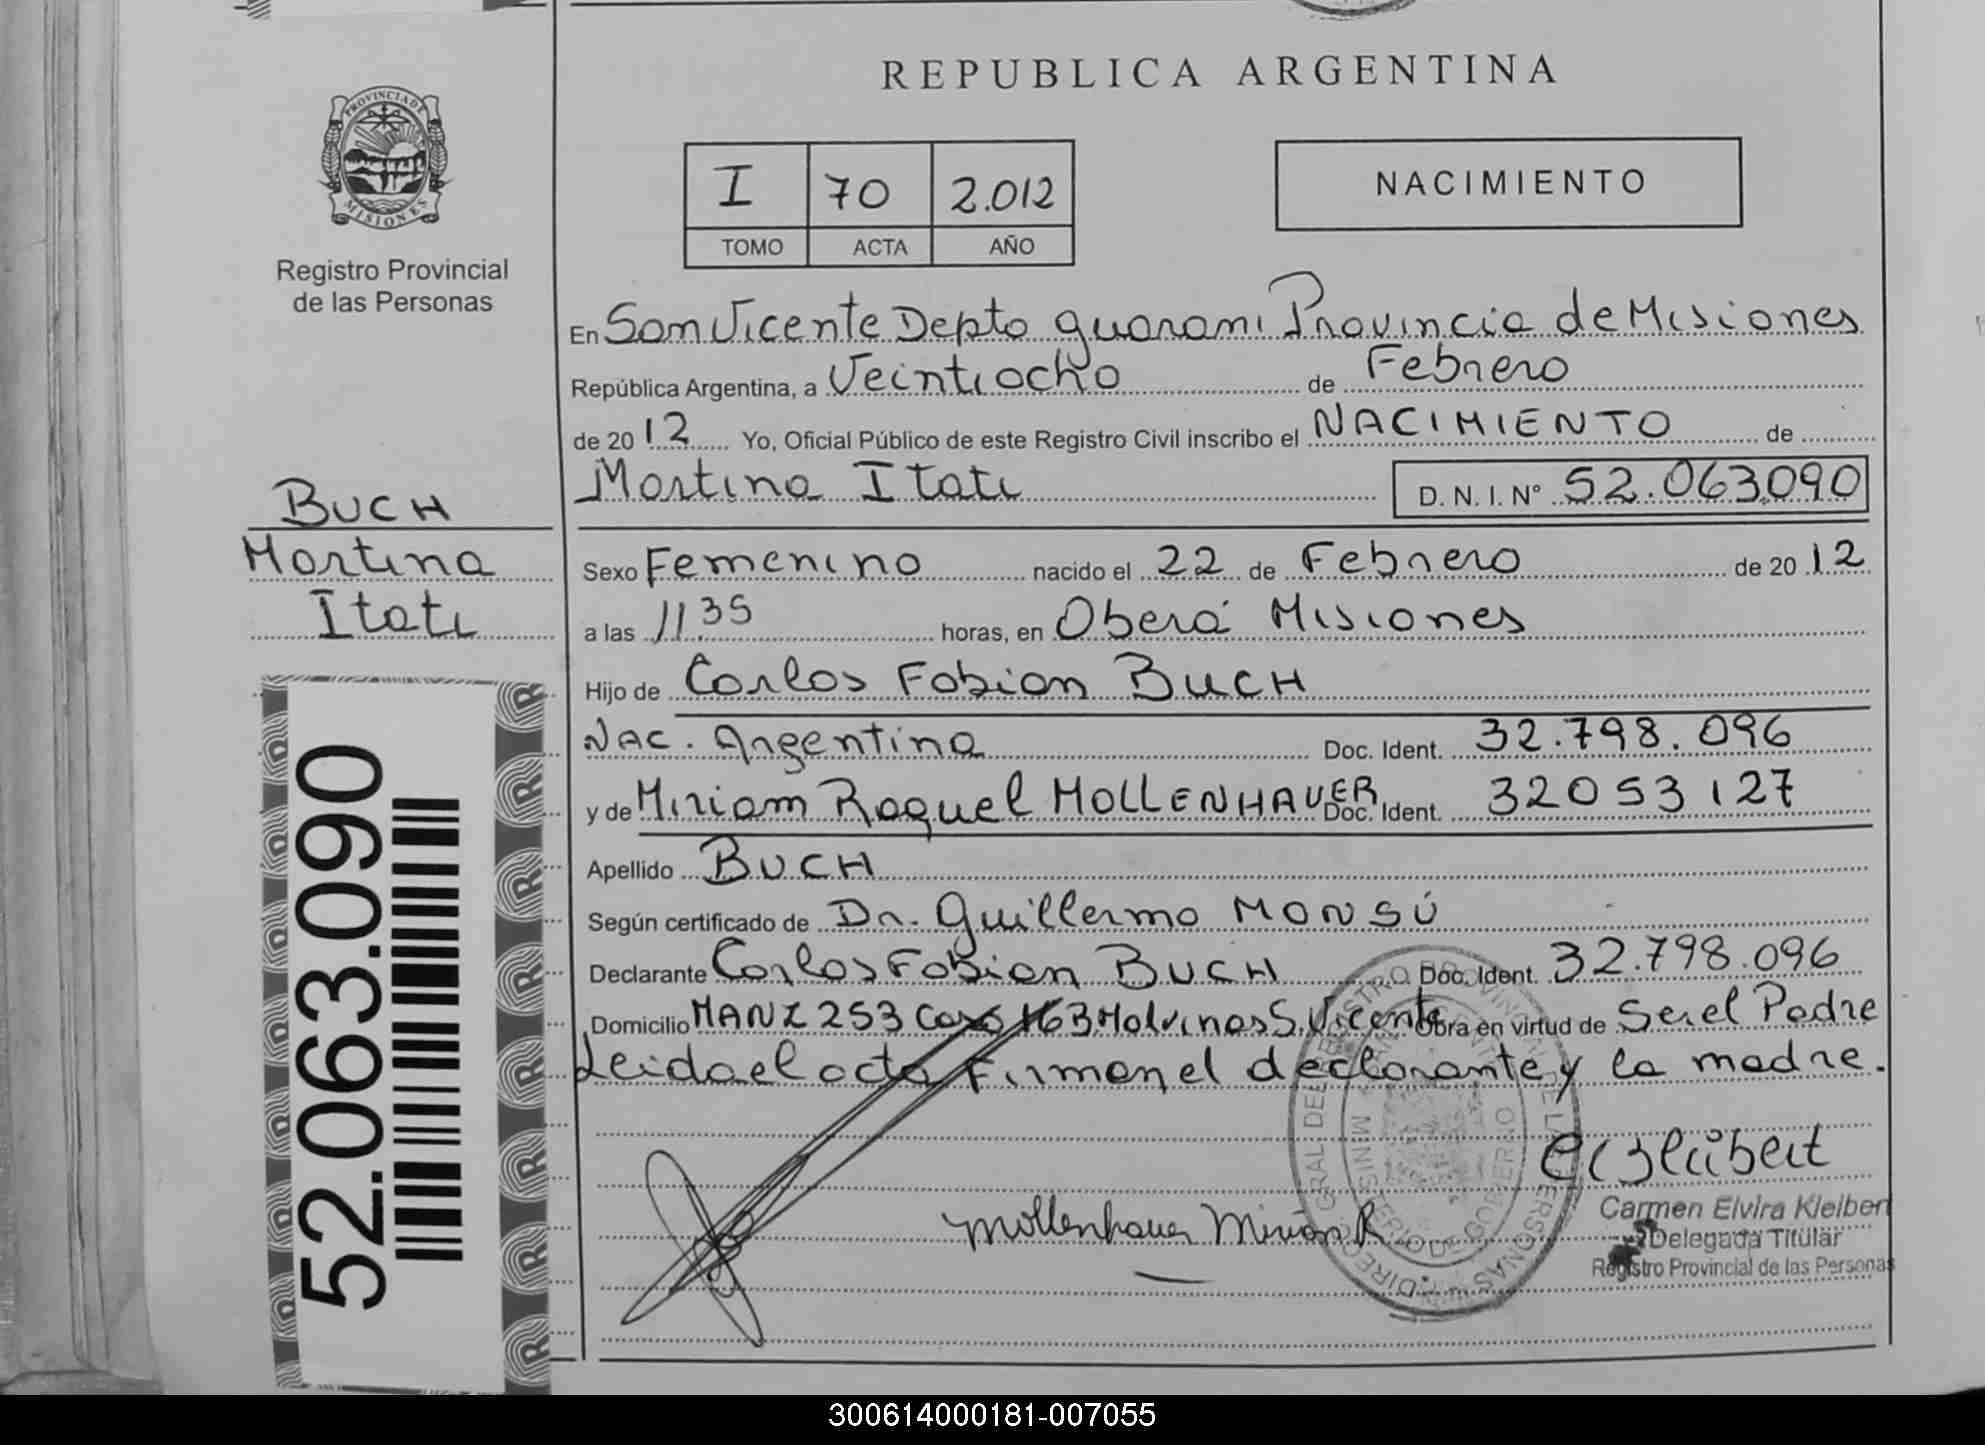 REPUBLICA ARGENTINA
PROVINCIA DE
MISIONES
Registro Provincial
de las Personas
I 70 2.012
TOMO ACTA AÑO
NACIMIENTO
En San Vicente Depto guarani Provincia de Misiones
República Argentina, a Veintiocho de Febrero
de 20 12 Yo, Oficial Público de este Registro Civil inscribo el NACIMIENTO de
Martina Itati D. N. I. Nº 52.063.090
BUCH
Martina
Itati
Sexo Femenino nacido el 22 de Febrero de 20 12
a las 11 35 horas, en Oberá Misiones
Hijo de Carlos Fabian BUCH
NAC. Argentina Doc. Ident. 32.798.096
y de Miriam Raquel MOLLENHAUER Doc. Ident. 32053127
Apellido BUCH
Según certificado de Dr. Guillermo MONSÚ
Declarante Carlos Fabian BUCH Doc. Ident. 32.798.096
Domicilio MANZ 253 Casa 163 Malvinas S. Vicente Obra en virtud de Ser el Padre
Leida el acta Firman el declarante y la madre.
52.063.090
Mollenhauer Miriam R
Carmen Elvira Kleibert
Delegada Titular
Registro Provincial de las Personas
300614000181-007055